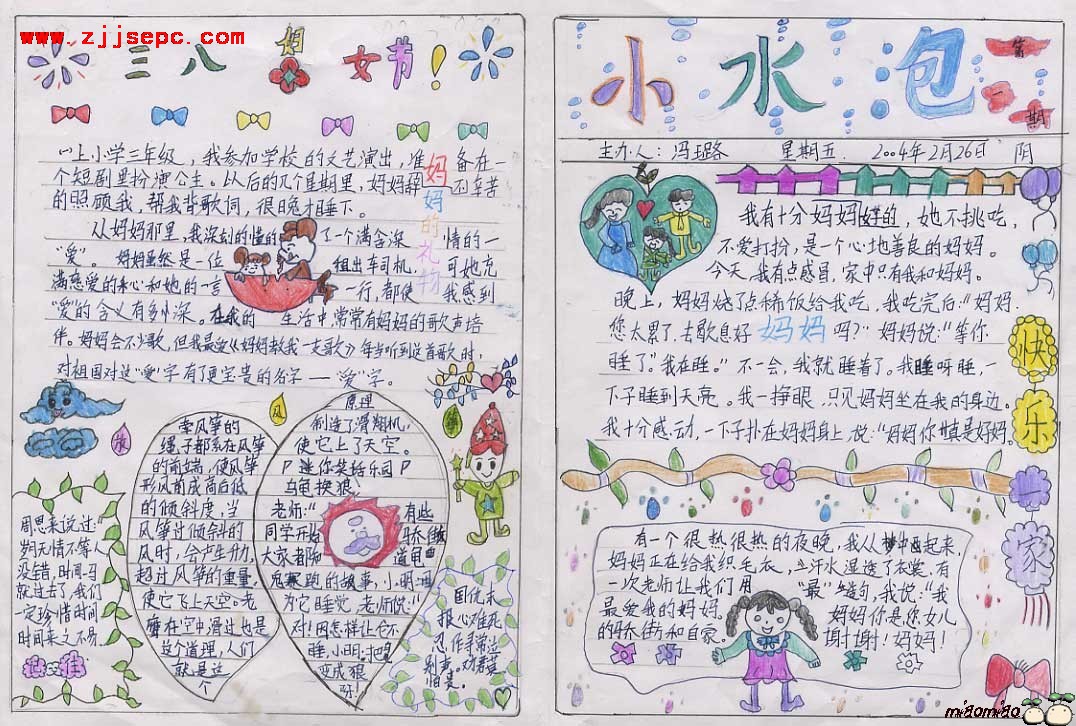 www.zjjsepc.com
三八妇女节!
"上小学三年级,我参加学校的文艺演出,准备在一
个短剧里扮演公主。从后的几个星期里,妈妈辞不辛苦
的照顾我,帮我背歌词,很晚才睡下。
妈妈的礼物
从妈妈那里,我深刻的懂的了一个满含深情的一
"爱"。妈妈虽然是一位租出车司机,可她充
满恋爱的和心和她的一言一行,都使我感到
"爱"的含义有多深。在我的生活中,常常有妈妈的歌声培
伴。妈妈会不少歌,但我最爱《妈妈教我一支歌》每当听到这首歌时,
对祖国对这"爱"字有了更宝贵的名字一"爱"字。
风筝
原理
牵风筝的
绳子都系在风筝
的前端,使风筝
形成前高后低
的倾斜度,当
风筝过倾斜的
风时,会产生升力,
超过风筝的重量,
使它飞上天空。
在空中滑过也是
这个道理,人们
就是这
个
制造了滑翔机,
使它上了天空。
P 迷你笑话乐园 P
乌龟换狼
老师:"
有些
同学开始骄傲
大家都知道龟
兔跑的故事,小明
为它睡觉,老师说:"
对!因怎样让它不
睡,小明:把
变成狼
呀!
周恩来说过:"
时间无情不等人
没错,时间一马
就过去了,我们
一定珍惜时间
时间来之不易
小水包
第一期
主办人:冯璐 星期五. 2004年2月26日 阴
我有十分妈妈的,她不挑吃,
不爱打扮,是一个心地善良的妈妈。
今天,我有点感冒,家中只有我和妈妈.
晚上,妈妈烧了点稀饭给我吃,我吃完后:"妈妈
您太累了,去歇息好妈妈吗?"妈妈说:"等你
睡了"。我在睡。"不一会,我就睡着了。我睡呀睡,一
下子睡到天亮。我一挣眼,只见妈妈坐在我的身边。
我十分感动,一下子扑在妈妈身上,说:"妈妈你真是好妈妈.
快乐一家
有一个很热很热的夜晚,我从梦中西起来,
妈妈正在给我织毛衣,汗水湿透了衣裳.有
一次老师让我们用"最"造句,我说:"我
最爱我的妈妈,妈妈你是您女儿
的骄傲和自豪。谢谢!妈妈!
miaomiao